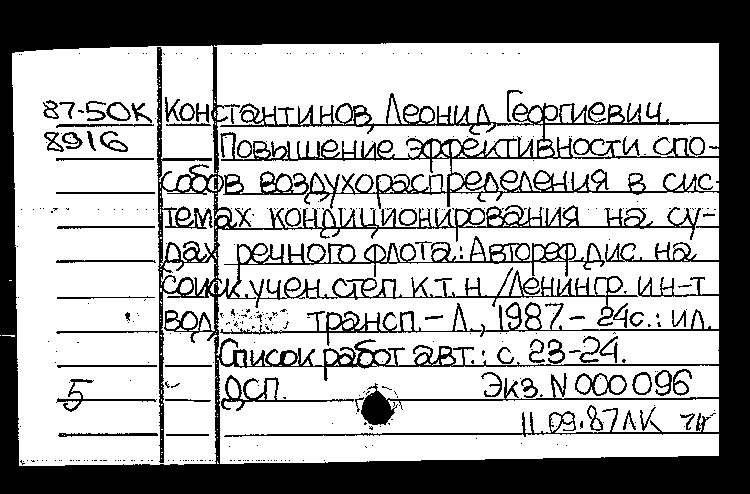 87-50К Константинов, Леонид Георгиевич.
8916 Повышение эффективности спо-
собов воздухораспределения в сис-
темах кондиционирования на су-
дах речного флота: Автореф. дис. на
соиск. учен. степ. к.т.н. /Ленингр. ин-т
вод. трансп. - Л., 1987. - 24с.: ил.
Список работ авт.: с. 23-24.
5 ДСП. Экз. N 000096
11.09.87 ЛК